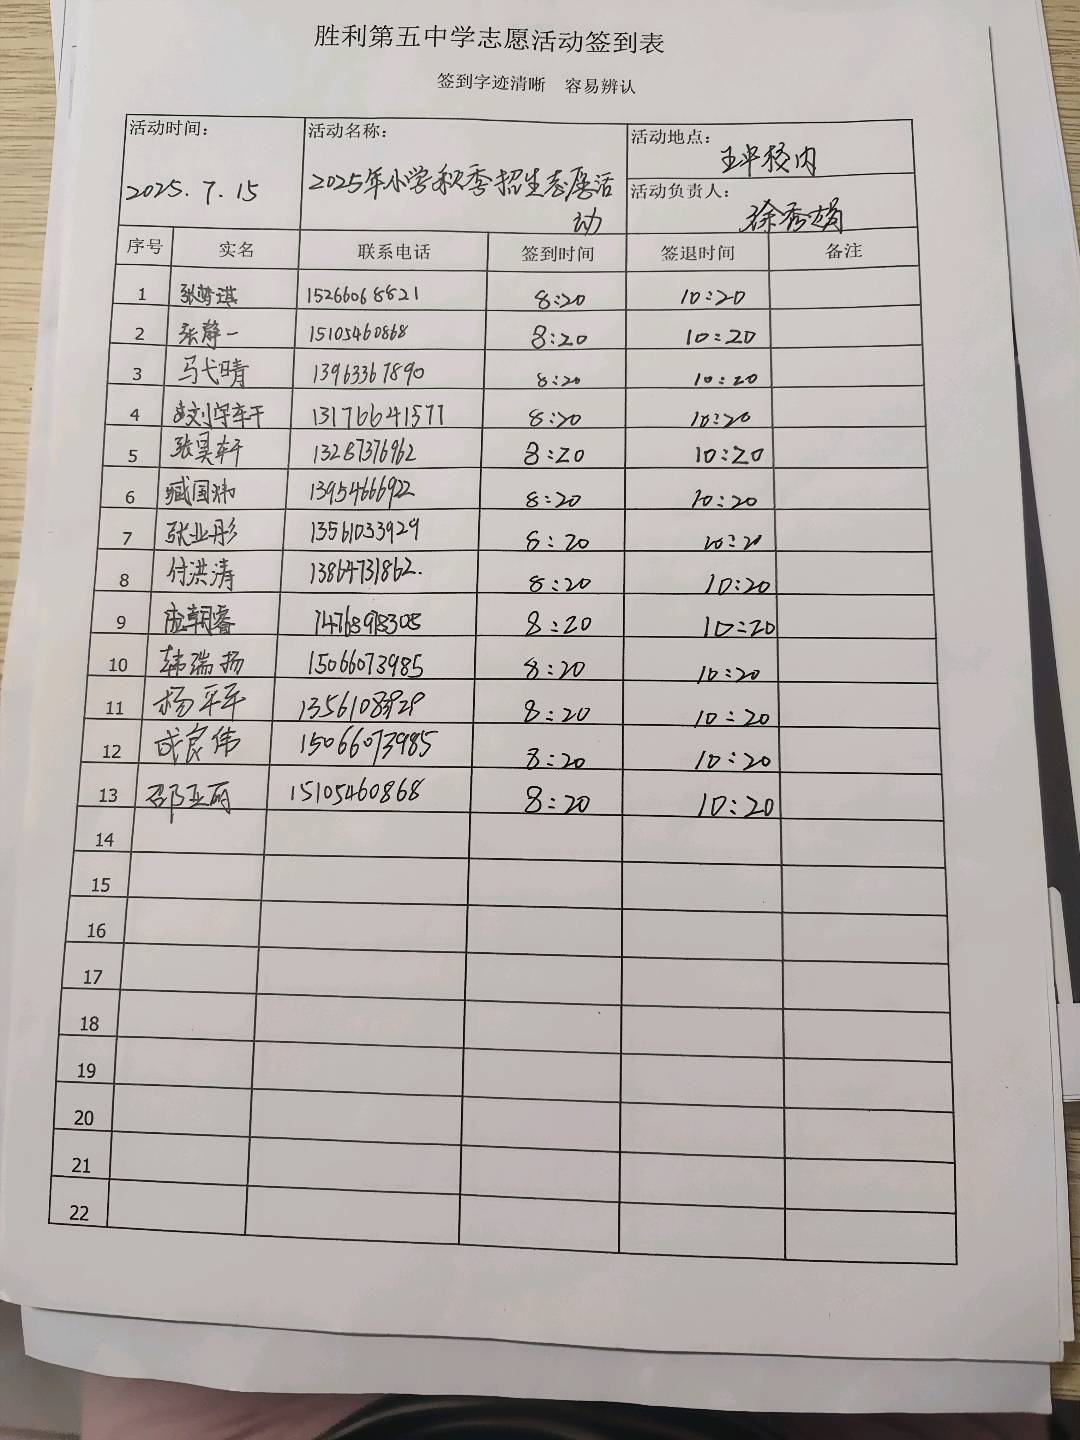 胜利第五中学志愿活动签到表
签到字迹清晰 容易辨认
活动时间: 2025.7.15
活动名称: 2025年小学秋季招生志愿活
动
活动地点: 校内
活动负责人: 徐秀娟
序号 实名 联系电话 签到时间 签退时间 备注
1 张梦琪 15266068821 8:20 10:20
2 张静一 15105460868 8:20 10:20
3 马弋晴 13963367890 8:20 10:20
4 刘宇轩 13176641577 8:20 10:20
5 张昊轩 13287376962 8:20 10:20
6 臧国炜 13954666922 8:20 10:20
7 张业彤 13561033929 8:20 10:20
8 付洪涛 13864731862. 8:20 10:20
9 朝睿 8:20 10:20
10 韩瑞扬 15066073985 8:20 10:20
11 杨平平 8:20 10:20
12 成良伟 15066073985 8:20 10:20
13 邵亚丽 15105460868 8:20 10:20
14
15
16
17
18
19
20
21
22